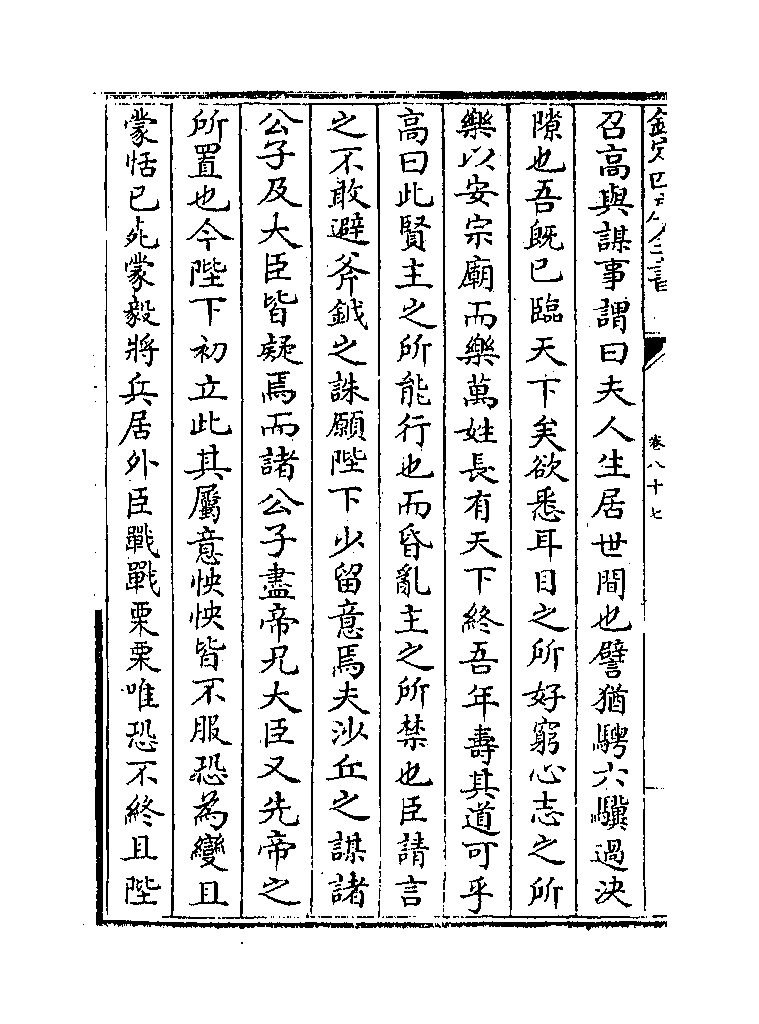 召高與謀事謂曰夫人生居世間也譬猶騁六驥過決
隙也吾既已臨天下矣欲悉耳目之所好窮心志之所
樂以安宗廟而樂萬姓長有天下終吾年壽其道可乎
高曰此賢主之所能行也而昏亂主之所禁也臣請言
之不敢避斧鉞之誅願陛下少留意焉夫沙丘之謀諸
公子及大臣皆疑焉而諸公子盡帝兄大臣又先帝之
所置也今陛下初立此其屬意怏怏皆不服恐為變且
蒙恬已死蒙毅將兵居外臣戰戰栗栗唯恐不終且陛
卷八十七